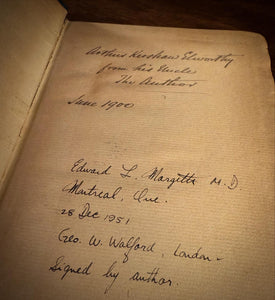 Arthur Kershaw Elworthy
from his Uncle
The Author
June 1900
Edward L. Margetts M.D
Montreal, Que.
28 Dec 1951
Geo. W. Walford, London-
Signed by author.